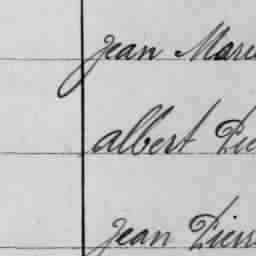 Jean Marie
albert Pie
Jean Pierr